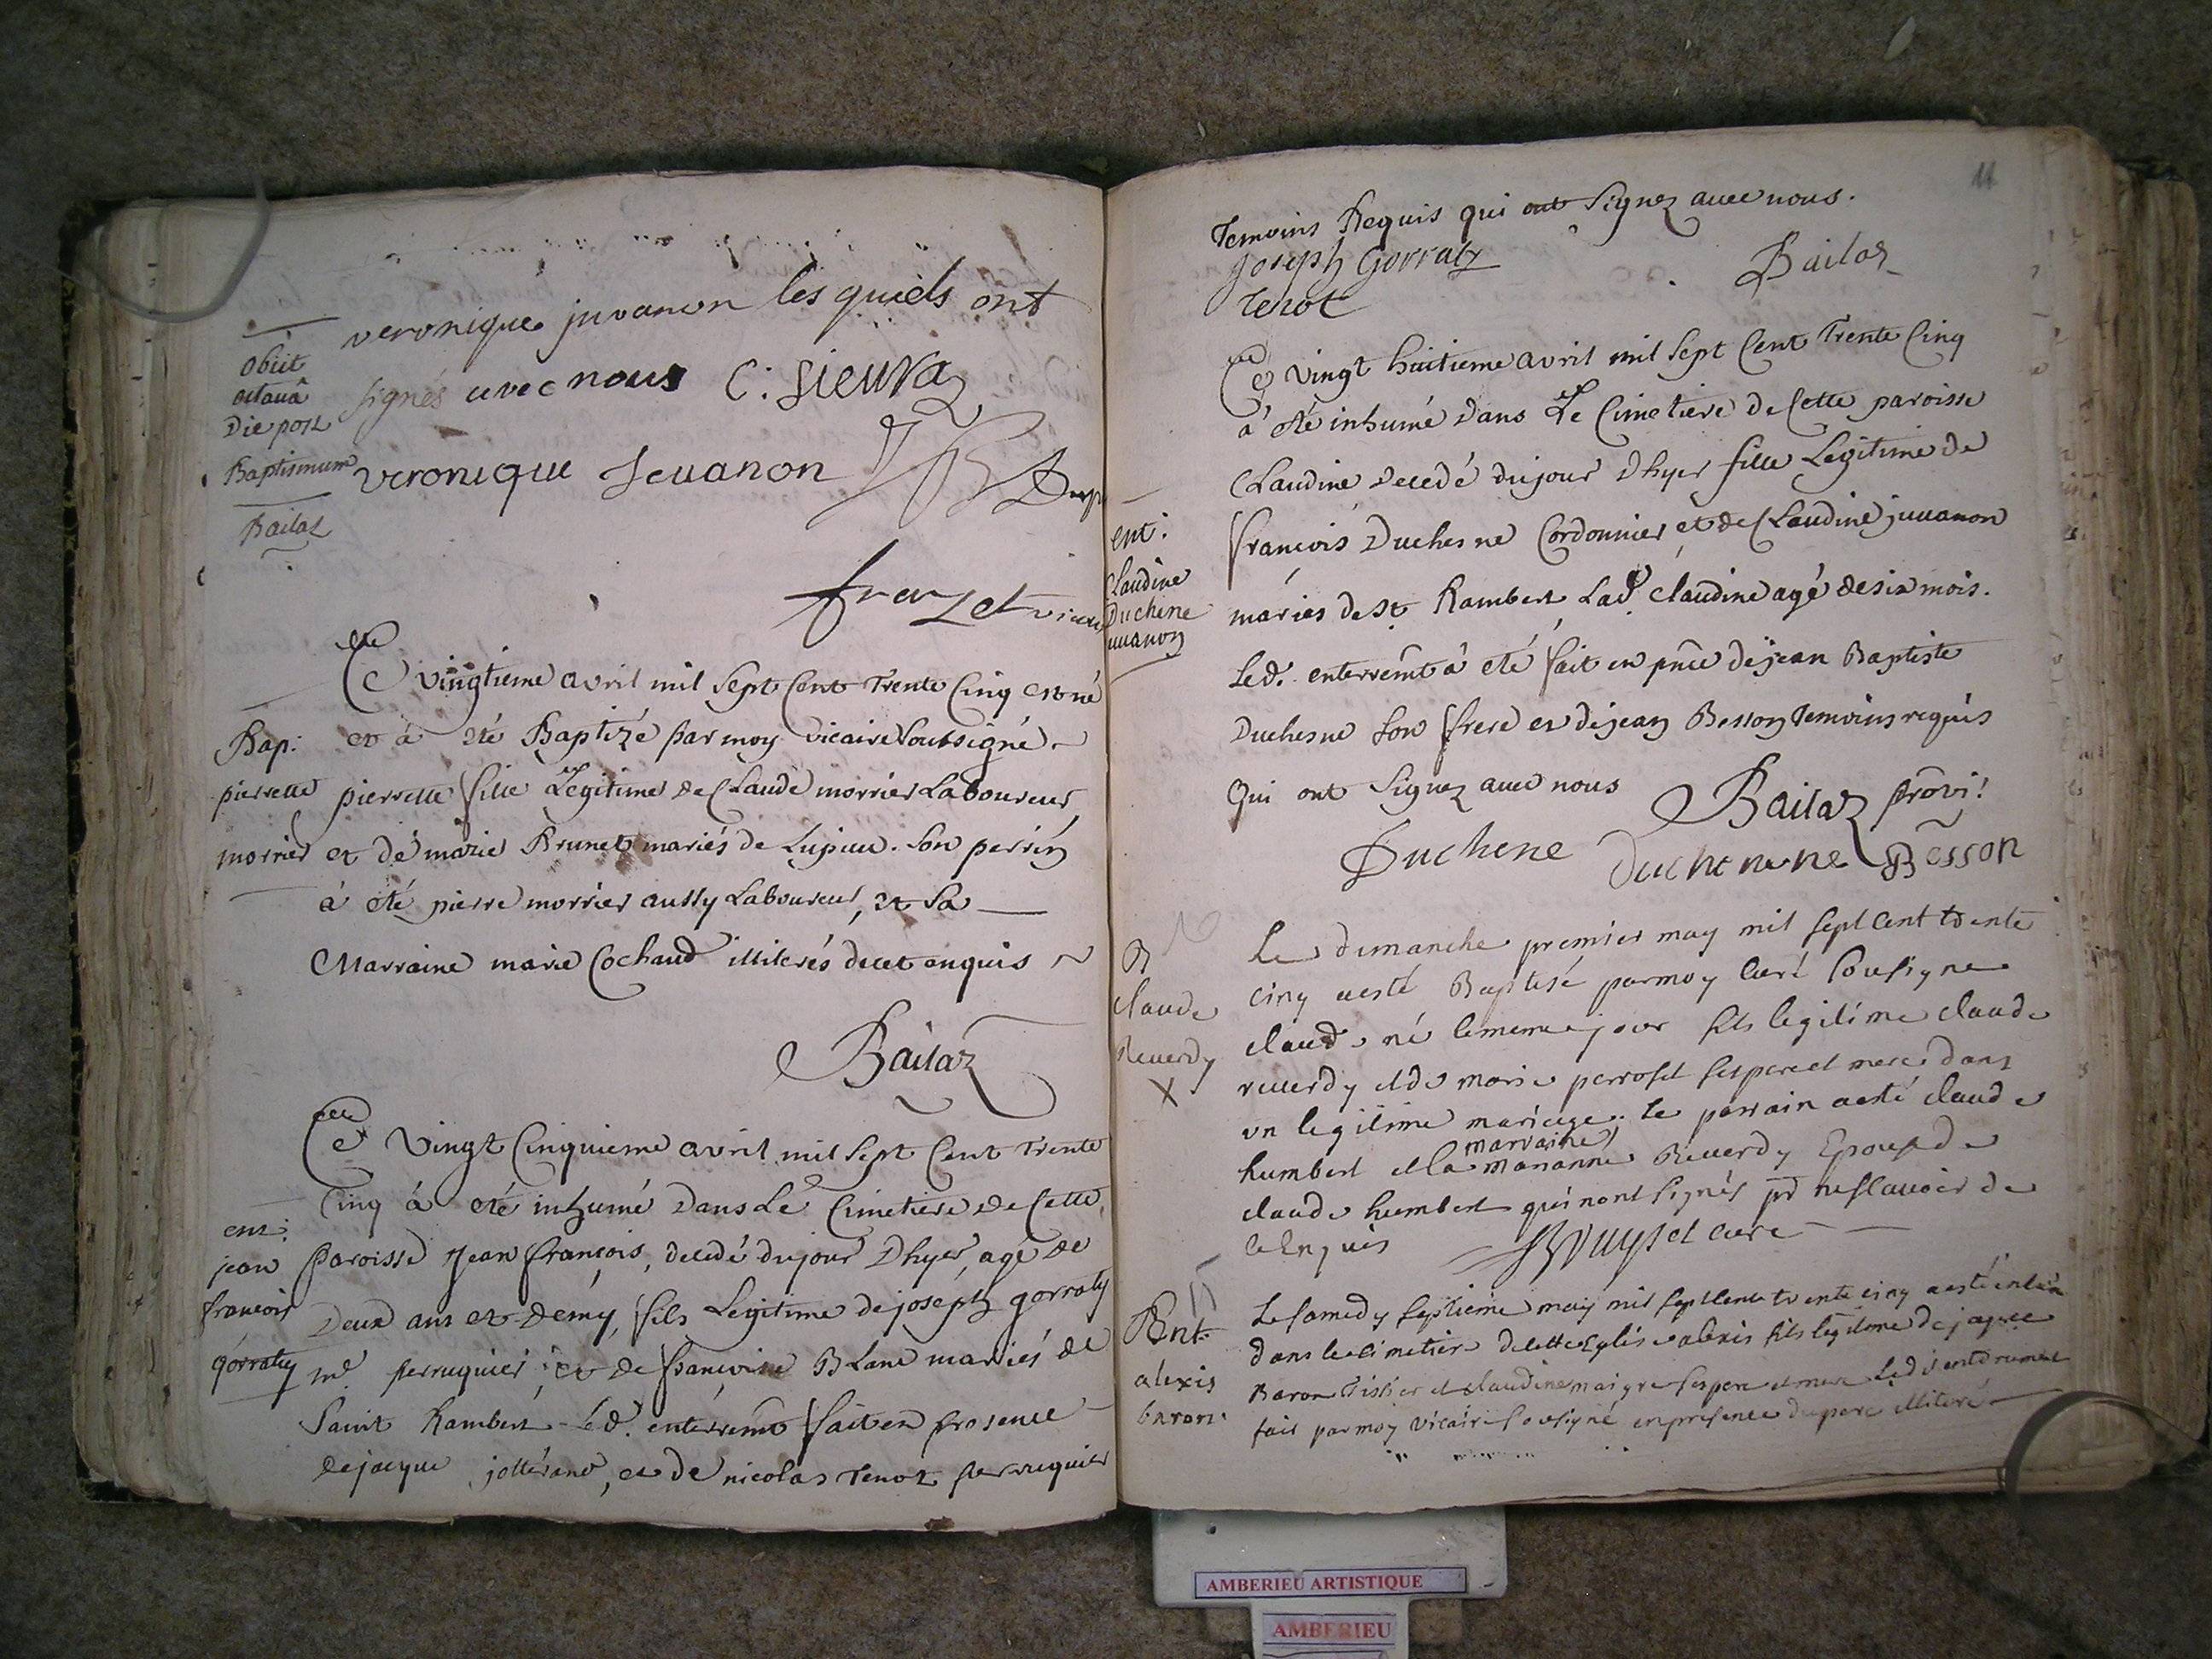 veronique juvanon les quels ont
obiit
octauâ
Die post
Baptismum
Bailaz
signés avec nous C: Sieuva
veronique Jeuanon
Ce vingtieme avril mil Sept Cent Trente Cinq est né
Bap:
pierrette
morrier
et à eté Baptizé par moy vicaire soubsigné
pierrette fille Legitime de Claude morrier Laboureur,
et de marie Brunet mariés de Lupieu. Son perrin
à eté pierre morrier aussy Laboureur, et Sa
Marraine marie Cochaud illiterés de cet enquis
Bailaz
Ce Vingt Cinquieme avril mil Sept Cent Trente
Cinq à eté inhumé Dans Le Cimetiere de Cette
ent:
jean
francois
gorraty
paroisse Jean françois, decedé du jour D'hyer, agé de
Deux ans et Demy, fils Legitime de joseph gorraty
me perruquier, et de francoise Blanc mariés de
Saint Rambert Led. enterremt fait en presence
de jacque jotterand, et de nicolas Tenot perruquier
11
Temoins Requis qui ont Signez avec nous.
Joseph Gorraty
Bailaz
Tenot
Ce vingt huitieme avril mil Sept Cent Trente Cinq
à eté inhumé Dans Le Cimetiere de Cette paroisse
Claudine decedé du jour D'hyer fille Legitime de
ent:
Claudine
Duchene
juuanon
françois Duchesne Cordonnier et de Claudine juuanon
mariés de St Rambert Lad. Claudine agé de six mois.
Led. enterremt à eté fait en pnce de jean Baptiste
Duchesne Son frere et de jean Besson Temoins requis
Qui ont Signez avec nous
Bailaz provi!
Duchene
Duchenne
Besson
B
Claude
Reuerdy
X
Le dimanche premier may mil sept cent trente
cinq a esté Baptisé par moy Curé Sousigne
claude né le meme jour fils legitime claude
reuerdy et de marie perroset ses pere et mere dans
un legitime mariage. le parrain a esté claude
humbert et la marraine marianne Reuerdy Epouse de
claude humbert qui n'ont signés pr ne scauoir de
ce Enquis
curé
Ent.
alexis
baron.
Le samedy septieme may mil sept cent trente cinq a esté enterre
dans le cimetiere de cette Eglise alexis fils legitime de jacque
Baron Tissier et claudine maigre ses pere et mere Led. enterrement
fait par moy vicaire sousigné en presence du pere illiteré
AMBERIEU ARTISTIQUE
AMBERIEU